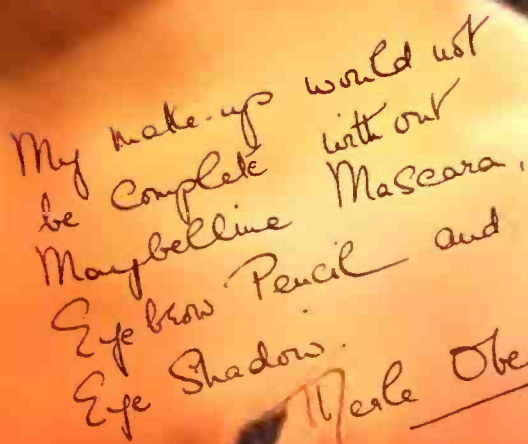 My make-up would not
be complete without
Maybelline Mascara,
Eyebrow Pencil and
Eye Shadow.
Merle Obe